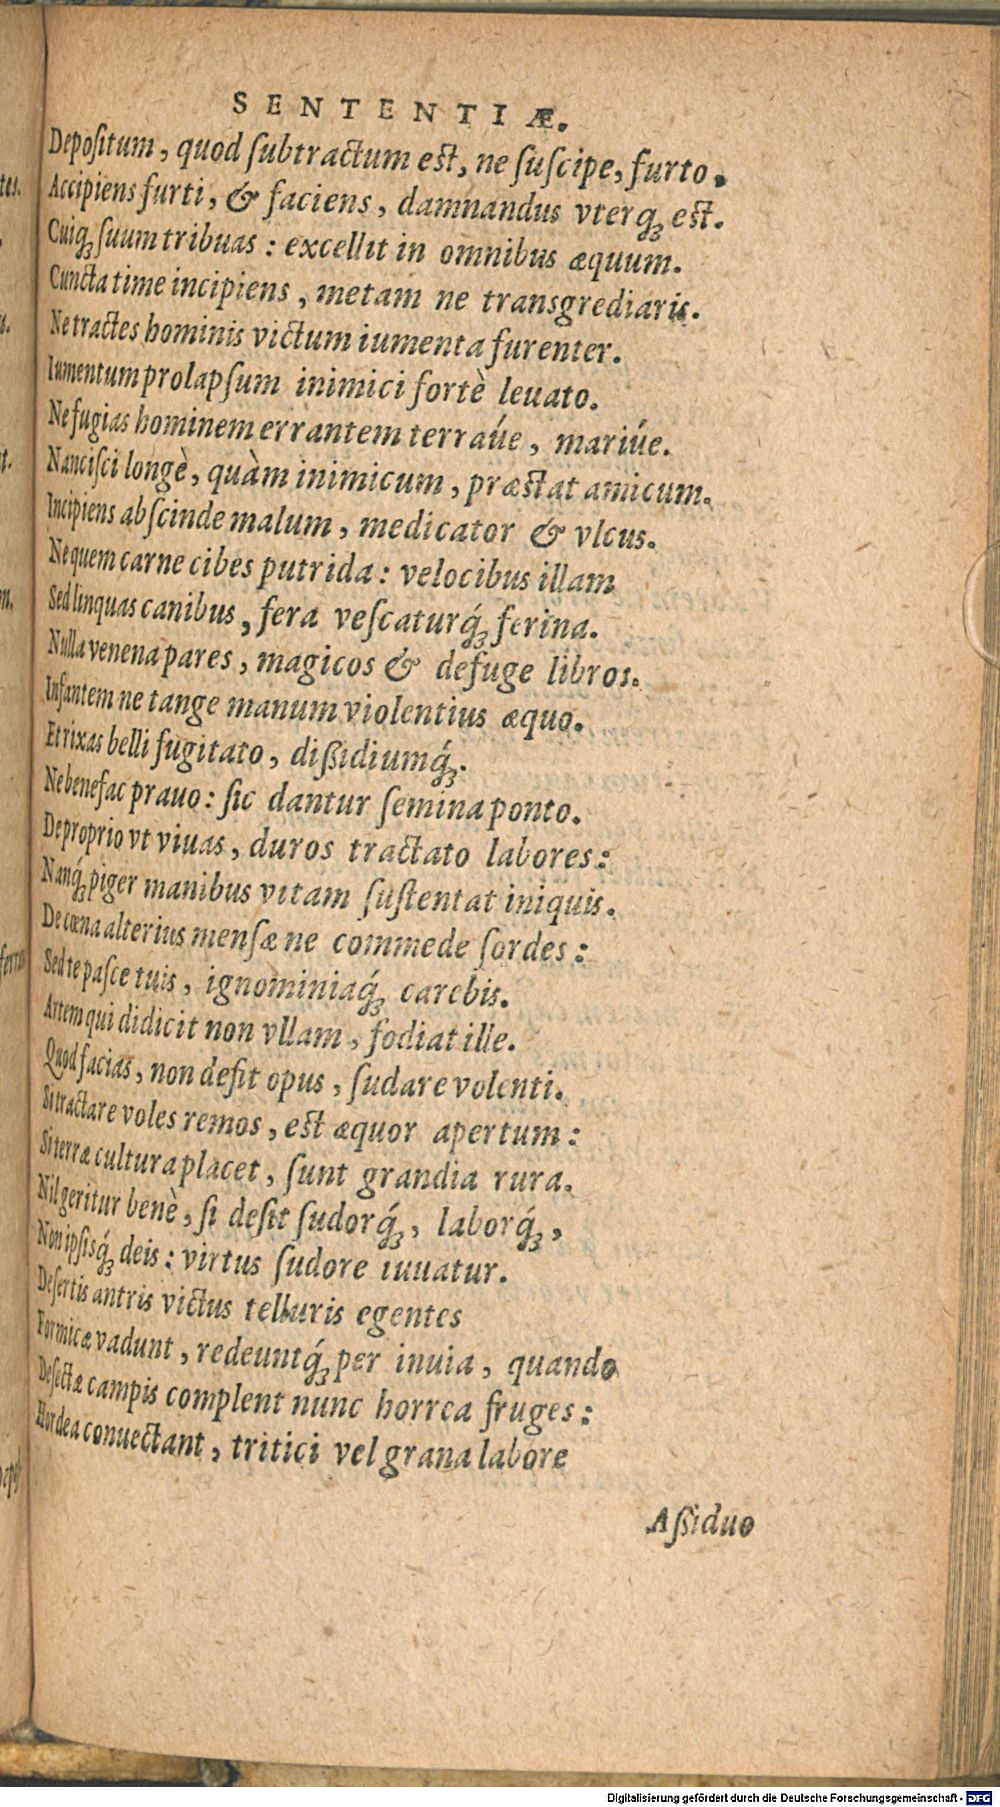 SENTENTIÆ.
Depoſitum, quod ſubtractum eſt, ne ſuſcipe, furto.
Accipiens furti, & faciens, damnandus vterq́; eſt.
Cuiq́; ſuum tribuas: excellit in omnibus æquum.
Cuncta time incipiens, metam ne transgrediaris.
Ne tractes hominis victum iumenta furenter.
Iumentum prolapſum inimici fortè leuato.
Ne fugias hominem errantem terraúe, mariúe.
Nanciſci longè, quàm inimicum, præſtat amicum.
Incipiens abſcinde malum, medicator & vlcus.
Ne quem carne cibes putrida: velocibus illam
Sed linquas canibus, fera veſcaturq́; ferina.
Nulla venena pares, magicos & defuge libros.
Infantem ne tange manum violentius æquo.
Et rixas belli fugitato, diſſidiumq́;.
Ne benefac prauo: ſic dantur ſemina ponto.
De proprio vt viuas, duros tractato labores:
Nanq́; piger manibus vitam ſuſtentat iniquis.
De cœna alterius menſæ ne commede ſordes:
Sed te paſce tuis, ignominiaq́; carebis.
Artem qui didicit non vllam, fodiat ille.
Quod facias, non deſit opus, ſudare volenti.
Si tractare voles remos, eſt æquor apertum:
Si terræ cultura placet, ſunt grandia rura.
Nil geritur benè, ſi deſit ſudorq́;, laborq́;,
Non ipſisq́; deis: virtus ſudore iuuatur.
Deſertis antris victus telluris egentes
Formicæ vadunt, redeuntq́; per inuia, quando
Deſectæ campis complent nunc horrea fruges:
Hordea conuectant, tritici vel grana labore
Aſſiduo
Digitalisierung gefördert durch die Deutsche Forschungsgemeinschaft - DFG